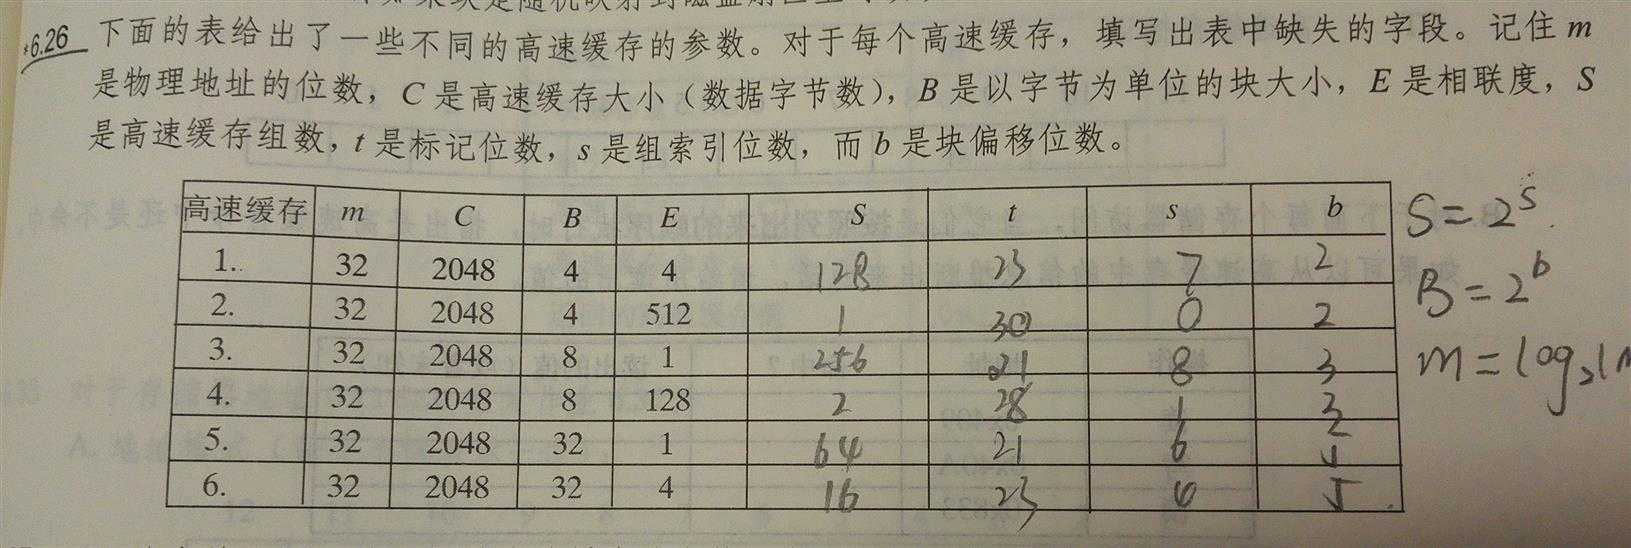 *6.26 下面的表给出了一些不同的高速缓存的参数。对于每个高速缓存，填写出表中缺失的字段。记住 m
是物理地址的位数，C 是高速缓存大小（数据字节数），B 是以字节为单位的块大小，E 是相联度，S
是高速缓存组数，t 是标记位数，s 是组索引位数，而 b 是块偏移位数。
高速缓存 m C B E S t s b
1. 32 2048 4 4 128 23 7 2
2. 32 2048 4 512 1 30 0 2
3. 32 2048 8 1 256 21 8 3
4. 32 2048 8 128 2 28 1 3
5. 32 2048 32 1 64 21 6
6. 32 2048 32 4 16 23 4 5
S=2^s
B=2^b
m=log₂(M